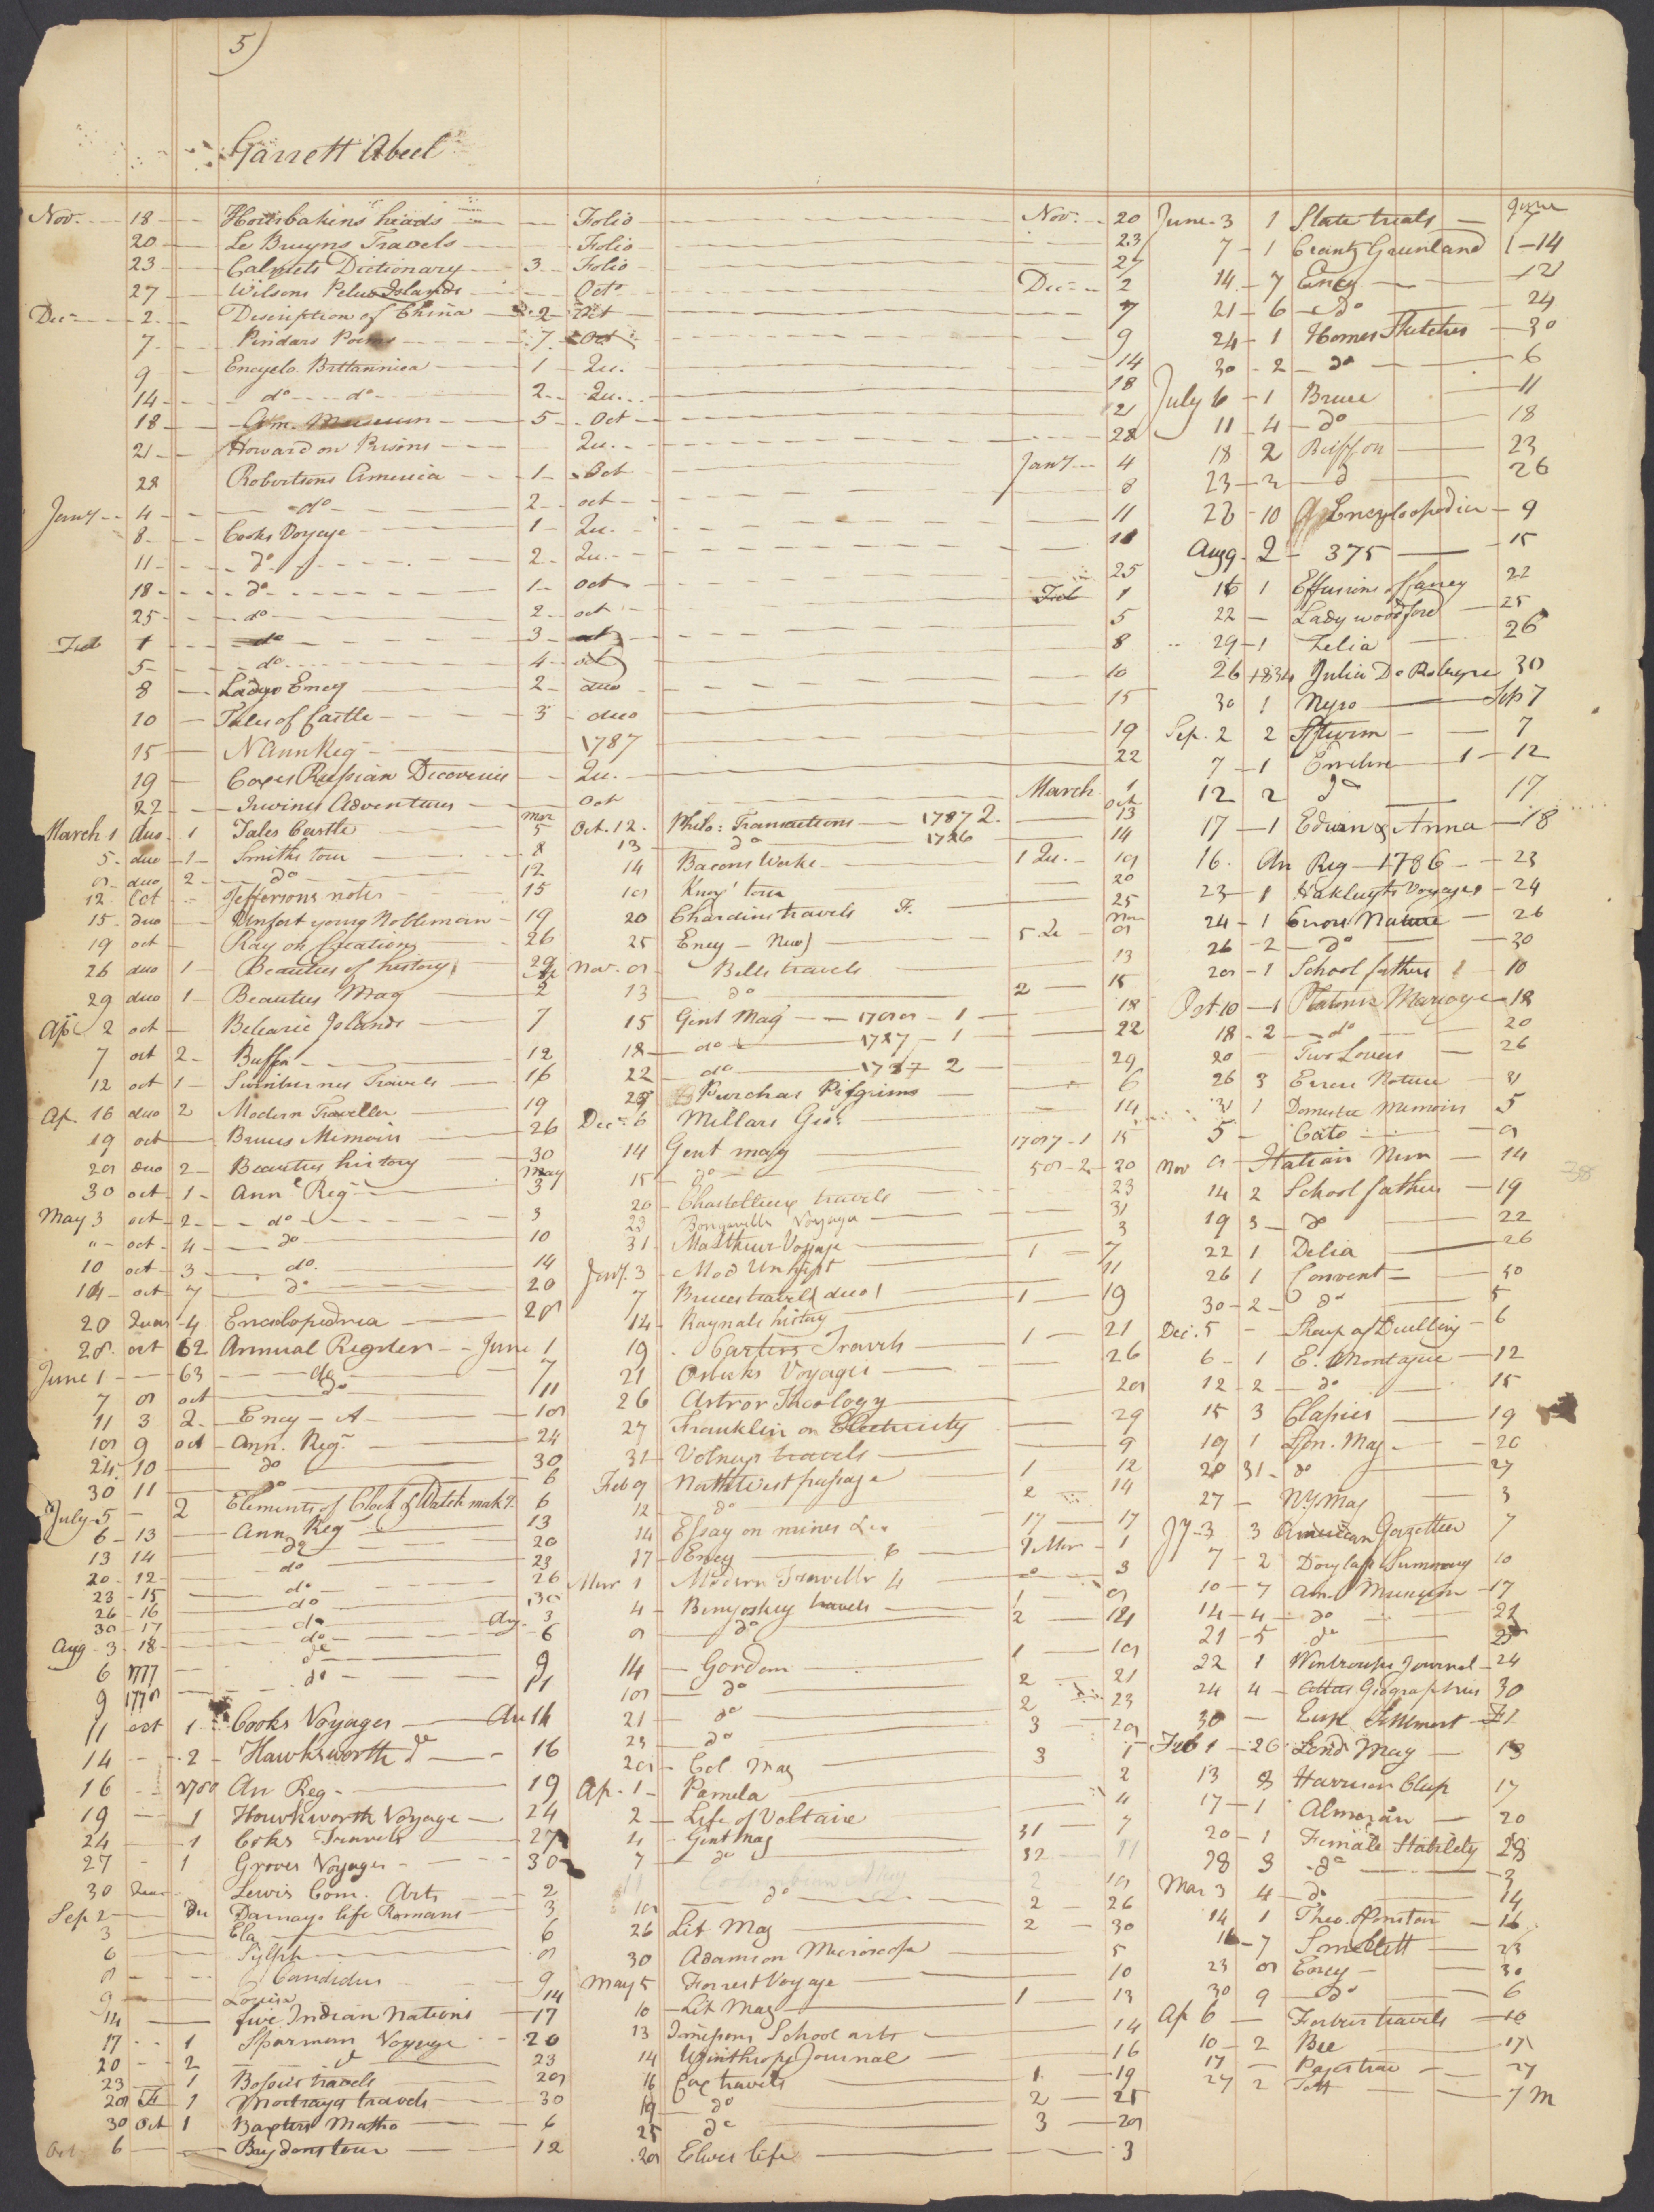 5)
Garrett Abeel
Nov. 18 Houbrakins heads Folio Nov. 20
20 Le Bruyns Travels Folio 23
23 Calmets Dictionary 3 Folio 27
27 Wilsons Pelew Islands Octo Dec 2
Dec 2 Description of China 2 Oct 7
7 Pindars Poems 7 Oct 9
9 Encyclo. Brittannica 1 Qu. 14
14 do do 2 Qu. 18
18 Am. Museum 5 Oct 21
21 Howard on Prisons Qu. 28
28 Robertsons America 1 Oct Jany 4
Jany 4 do 2 oct 8
8 Cooks Voyage 1 Qu. 11
11 do 2 Qu. 18
18 do 1 oct 25
25 do 2 oct Feb 1
Feb 1 do 3 oct 5
5 do 4 oct 8
8 Ladys Ency 2 duo 10
10 Tales of Castle 3 duo 15
15 N Ann Reg 1787 19
19 Coxes Russian Discoveries Qu. 22
22 Irwines Adventures Oct March 1
March 1 duo 1 Tales Castle Mar 5
5 duo 1 Smiths tour 8
8 duo 2 do 12
12 Oct Jeffersons notes 15
15 duo Unfort young Nobleman 19
19 oct Ray on Creation 26
26 duo 1 Beauties of history 29
29 duo 1 Beauties Mag Ap 2
Ap 2 oct Belearic Islands 7
7 oct 2 Buffon 12
12 oct 1 Swinburnes Travels 16
Ap. 16 duo 2 Modern Traveller 19
19 oct Bruces Memoirs 26
28 duo 2 Beauties history 30
30 oct 1 Ann Reg May 3
May 3 oct 2 do 3
" oct 4 do 10
10 oct 3 do 14
14 oct 7 do 20
20 Quar 4 Encyclopedia 28
28 oct 62 Annual Register June 1
June 1 63 do 7
7 8 oct do 11
11 3 2 Ency A 18
18 9 oct Ann. Reg. 24
24 10 do 30
30 11 do 6
July 5 2 Elements of Clock & Watch makg. 6
6 13 Ann Reg 13
13 14 do 20
20 12 do 23
23 15 do 26
26 16 do 30
30 17 do Aug. 3
Aug 3 18 do 6
6 1777 do 9
9 1778 do 11
11 oct 1 Cooks Voyages Au 14
14 2 Hawksworth do 16
16 1780 An Reg 19
19 1 Hawkworth Voyage 24
24 1 Coks Travels 27
27 1 Groves Voyages 30
30 Quar Lewis Com. Arts 2
Sep 2 Du Darnays life Romans 3
3 Ela 6
6 Sylph 8
8 Candidus 9
9 Louisa 14
14 five Indian Nations 17
17 1 Sparman Voyage 20
20 2 do 23
23 1 Bossus travels 28
28 F 1 Mortrays travels 30
30 Oct 1 Baxters Matho 6
Oct 6 Baydons tour 12
Oct. 12 Philo: Transactions 1787 2. Oct 13
13 do 1726 14
14 Bacons Works 1 Qu. 18
18 Knox' tour 20
20 Chardins travels F. 25
25 Ency New 5 Qu Nov 8
Nov. 8 Bells travels 13
13 do 2 15
15 Gent Mag 1788 1 18
18 do 1787 1 22
22 do 1787 2 29
29 Purchas Pilgrims 6
Dec. 6 Millars Geo. 14
14 Gent mag 1787 1 15
15 do 58 2 20
20 Chastelleux travels 23
23 Bongavills Voyage 31
31 Matthews Voyage 3
Jany. 3 Mod Unhist 1 7
7 Bruces travels duo 1 11
14 Raynals history 1 19
19 Carters Travels 1 21
21 Osbecks Voyages 26
26 Astror Theology 28
27 Franklin on Electricity 29
31 Volneys travels 9
Feb 9 North West passage 1 12
12 do 2 14
14 Essay on mines &c 17 17
17 Ency 6 Mar 1
Mar 1 Modern Traveller 4 3
4 Benyoskey travels 1 8
8 do 2 14
14 Gordon 1 18
18 do 2 21
21 do 2 23
23 do 3 28
28 Col Mag 3 1
Ap. 1 Pamela 2
2 Life of Voltaire 4
4 Gent Mag 31 7
7 do 32 11
11 Columbian Mag 2 18
18 do 2 26
26 Lit Mag 2 30
30 Adams on Microscope 5
May 5 Forrest Voyage 10
10 Lit Mag 1 13
13 Imisons School arts 14
14 Winthrops Journal 16
16 Cox travels 1 19
19 do 2 25
25 do 3 28
28 Elwes life 3
June 3 1 State trials June 7
7 1 Crantz Greenland 1 14
14 7 Ency 21
21 6 do 24
24 1 Homes Sketches 30
30 2 do 6
July 6 1 Bruce 11
11 4 do 18
18 2 Buffon 23
23 3 do 26
26 10 Encyclopedia 9
Aug 9 2 375 15
16 1 Effusions of fancy 22
22 Lady woodford 25
29 1 Zelia 26
26 1 & 3 & 4 Julia De Robigne 30
30 1 Nyso Sep 7
Sep. 2 2 7
7 1 Emeline 1 12
12 2 do 17
17 1 Edwin & Anna 18
16 An Reg 1786 23
23 1 Hakluyts Voyages 24
24 1 Errors Nature 26
26 2 do 30
28 1 School fathers 10
Oct 10 1 Platonic Marriage 18
18 2 do 20
20 Two Lovers 26
26 3 Errors Nature 31
31 1 Domestic Memoirs 5
5 Cato 8
Nov 8 Italian Nun 14
14 2 School fathers 19
19 3 do 22
22 1 Delia 26
26 1 Convent 30
30 2 do 5
Dec. 5 Sharp of Duelling 6
6 1 E. Montague 12
12 2 do 15
15 3 Clasics 19
19 1 Lon. Mag 20
20 31 do 27
27 NY Mag 3
Jy 3 3 American Gazetteer 7
7 2 Douglass Summary 10
10 7 Am. Museum 17
14 4 do 21
21 5 do 25
22 1 Wentroups Journal 24
24 4 Geographies 30
30 Eup Settlment F 1
Feb 1 26 Lond Mag 13
13 3 Harrison Clasp 17
17 1 Almoran 20
20 1 Female Stability 28
28 3 do 3
Mar 3 4 do 14
14 1 Theo. 16
16 7 Smollett 23
23 8 Ency 30
30 9 do 6
Ap 6 Forbes travels 10
10 2 Bee 17
17 Pages trav 27
27 2 Tott 7 M